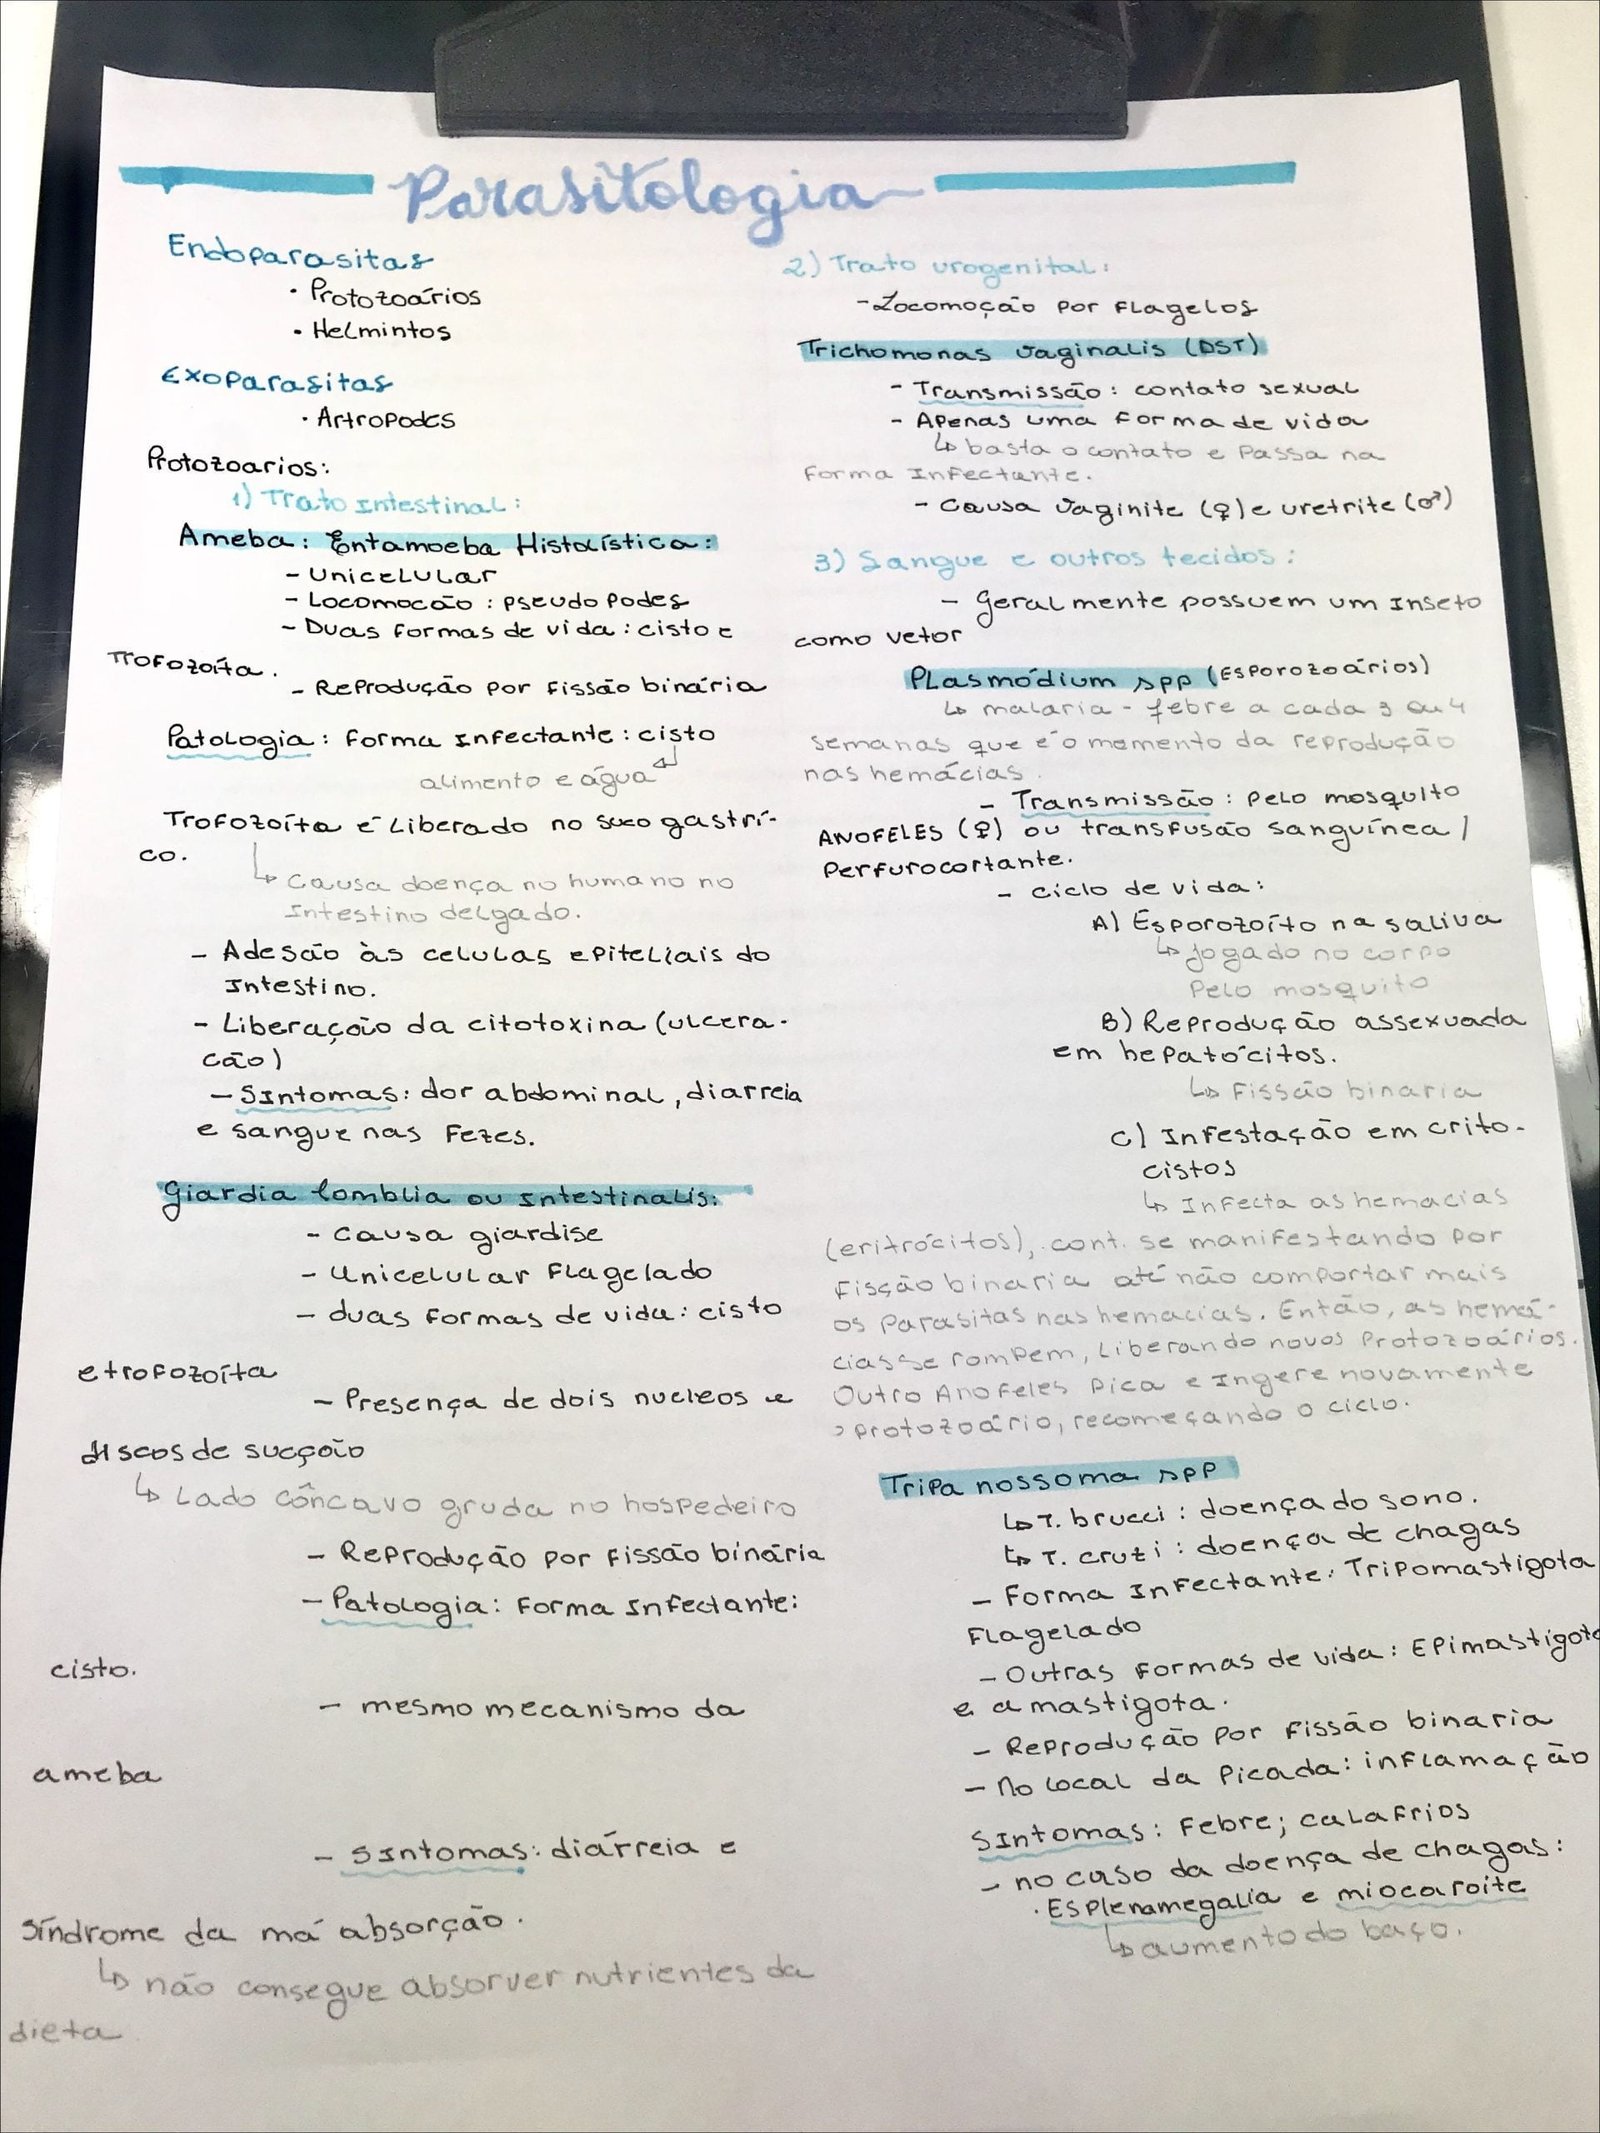 Parasitologia
Endoparasitas
• Protozoários
• Helmintos
Exoparasitas
• Artropodes
Protozoarios:
1) Trato Intestinal:
Ameba: Entamoeba Histolística:
- Unicelular
- Locomocão: pseudo podes
- Duas formas de vida: cisto e
Trofozoíta.
- Reprodução por fissão binária
Patologia: Forma Infectante: cisto
alimento e água
Trofozoíta é Liberado no suco gastri-
co.
↳ Causa doença no humano no
Intestino delgado.
- Adesão às celulas epiteliais do
Intestino.
- Liberação da citotoxina (ulcera-
cão)
- Sintomas: dor abdominal, diarreia
e sangue nas Fezes.
Giardia lomblia ou Intestinalis:
- Causa giardise
- Unicelular Flagelado
- duas formas de vida: cisto
e trofozoíta
- Presença de dois nucleos e
discos de sucção
↳ Lado côncavo gruda no hospedeiro
- Reprodução por fissão binária
- Patologia: Forma Infectante:
cisto.
- mesmo mecanismo da
ameba
- sintomas: diárreia e
síndrome da má absorção.
↳ não consegue absorver nutrientes da
dieta
2) Trato urogenital:
- Locomoção por Flagelos
Trichomonas vaginalis (DST)
- Transmissão: contato sexual
- Apenas uma forma de vida
↳ basta o contato e Passa na
Forma Infectante.
- causa vaginite (♀) e uretrite (♂)
3) Sangue e outros tecidos:
- Geralmente possuem um Inseto
como vetor
Plasmódium spp (Esporozoários)
↳ malaria - febre a cada 3 ou 4
semanas que é o momento da reprodução
nas hemácias.
- Transmissão: pelo mosquito
ANOFELES (♀) ou transfusão sanguínea /
Perfurocortante.
- ciclo de vida:
A) Esporozoíto na saliva
↳ jogado no corpo
Pelo mosquito
B) Reprodução assexuada
em hepatócitos.
↳ Fissão binaria
C) Infestação em crito-
cistos
↳ Infecta as hemacias
(eritrócitos), cont. se manifestando por
Fissão binaria até não comportar mais
os Parasitas nas hemacias. Então, as hemá-
cias se rompem, Liberando novos Protozoários.
Outro Anofeles Pica e Ingere novamente
protozoário, recomeçando o ciclo.
Tripanossoma spp
↳ T. brucci: doença do sono.
↳ T. cruzi: doença de chagas
- Forma Infectante: Tripomastigota
Flagelado
- Outras formas de vida: Epimastigota
e amastigota.
- Reprodução por Fissão binaria
- No local da Picada: inflamação
Sintomas: Febre; calafrios
- no caso da doença de chagas:
• Esplenamegalia e miocaroite
↳ aumento do baço.